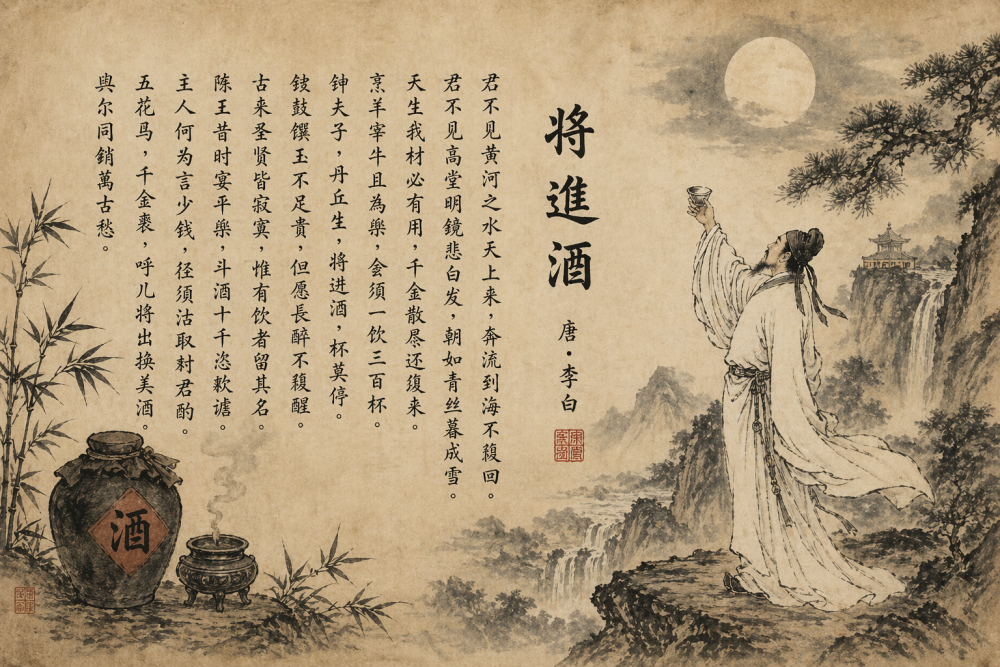 将進酒
唐·李白
君不见黄河之水天上来，奔流到海不複回。
君不见高堂明鏡悲白发，朝如青丝暮成雪。
天生我材必有用，千金散尽还復来。
烹羊宰牛且為樂，會须一饮三百杯。
钟夫子，丹丘生，将进酒，杯莫停。
鼓饌玉不足貴，但愿長醉不複醒。
古来圣贤皆寂寞，惟有饮者留其名。
陈王昔时宴平樂，斗酒十千恣歡謔。
主人何为言少钱，径须沽取对君酌。
五花马，千金裘，呼儿将出换美酒。
與尔同銷萬古愁。
酒